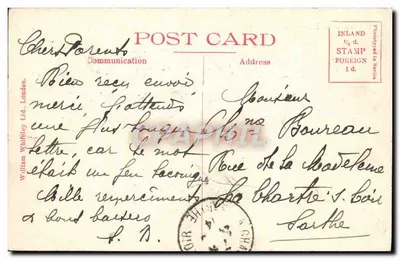 POST CARD
Communication
Address
INLAND
½ d.
STAMP
FOREIGN
1 d.
William Whiteley Ltd., London.
Chers Parents
Bien reçu envoi
merci j'attends
une plus longue
lettre, car le mot
était un peu laconique
Mille remerciements
& bons baisers
S. B.
Monsieur
Boureau
Rue de la Madeleine
La Chartre s. Loir
Sarthe